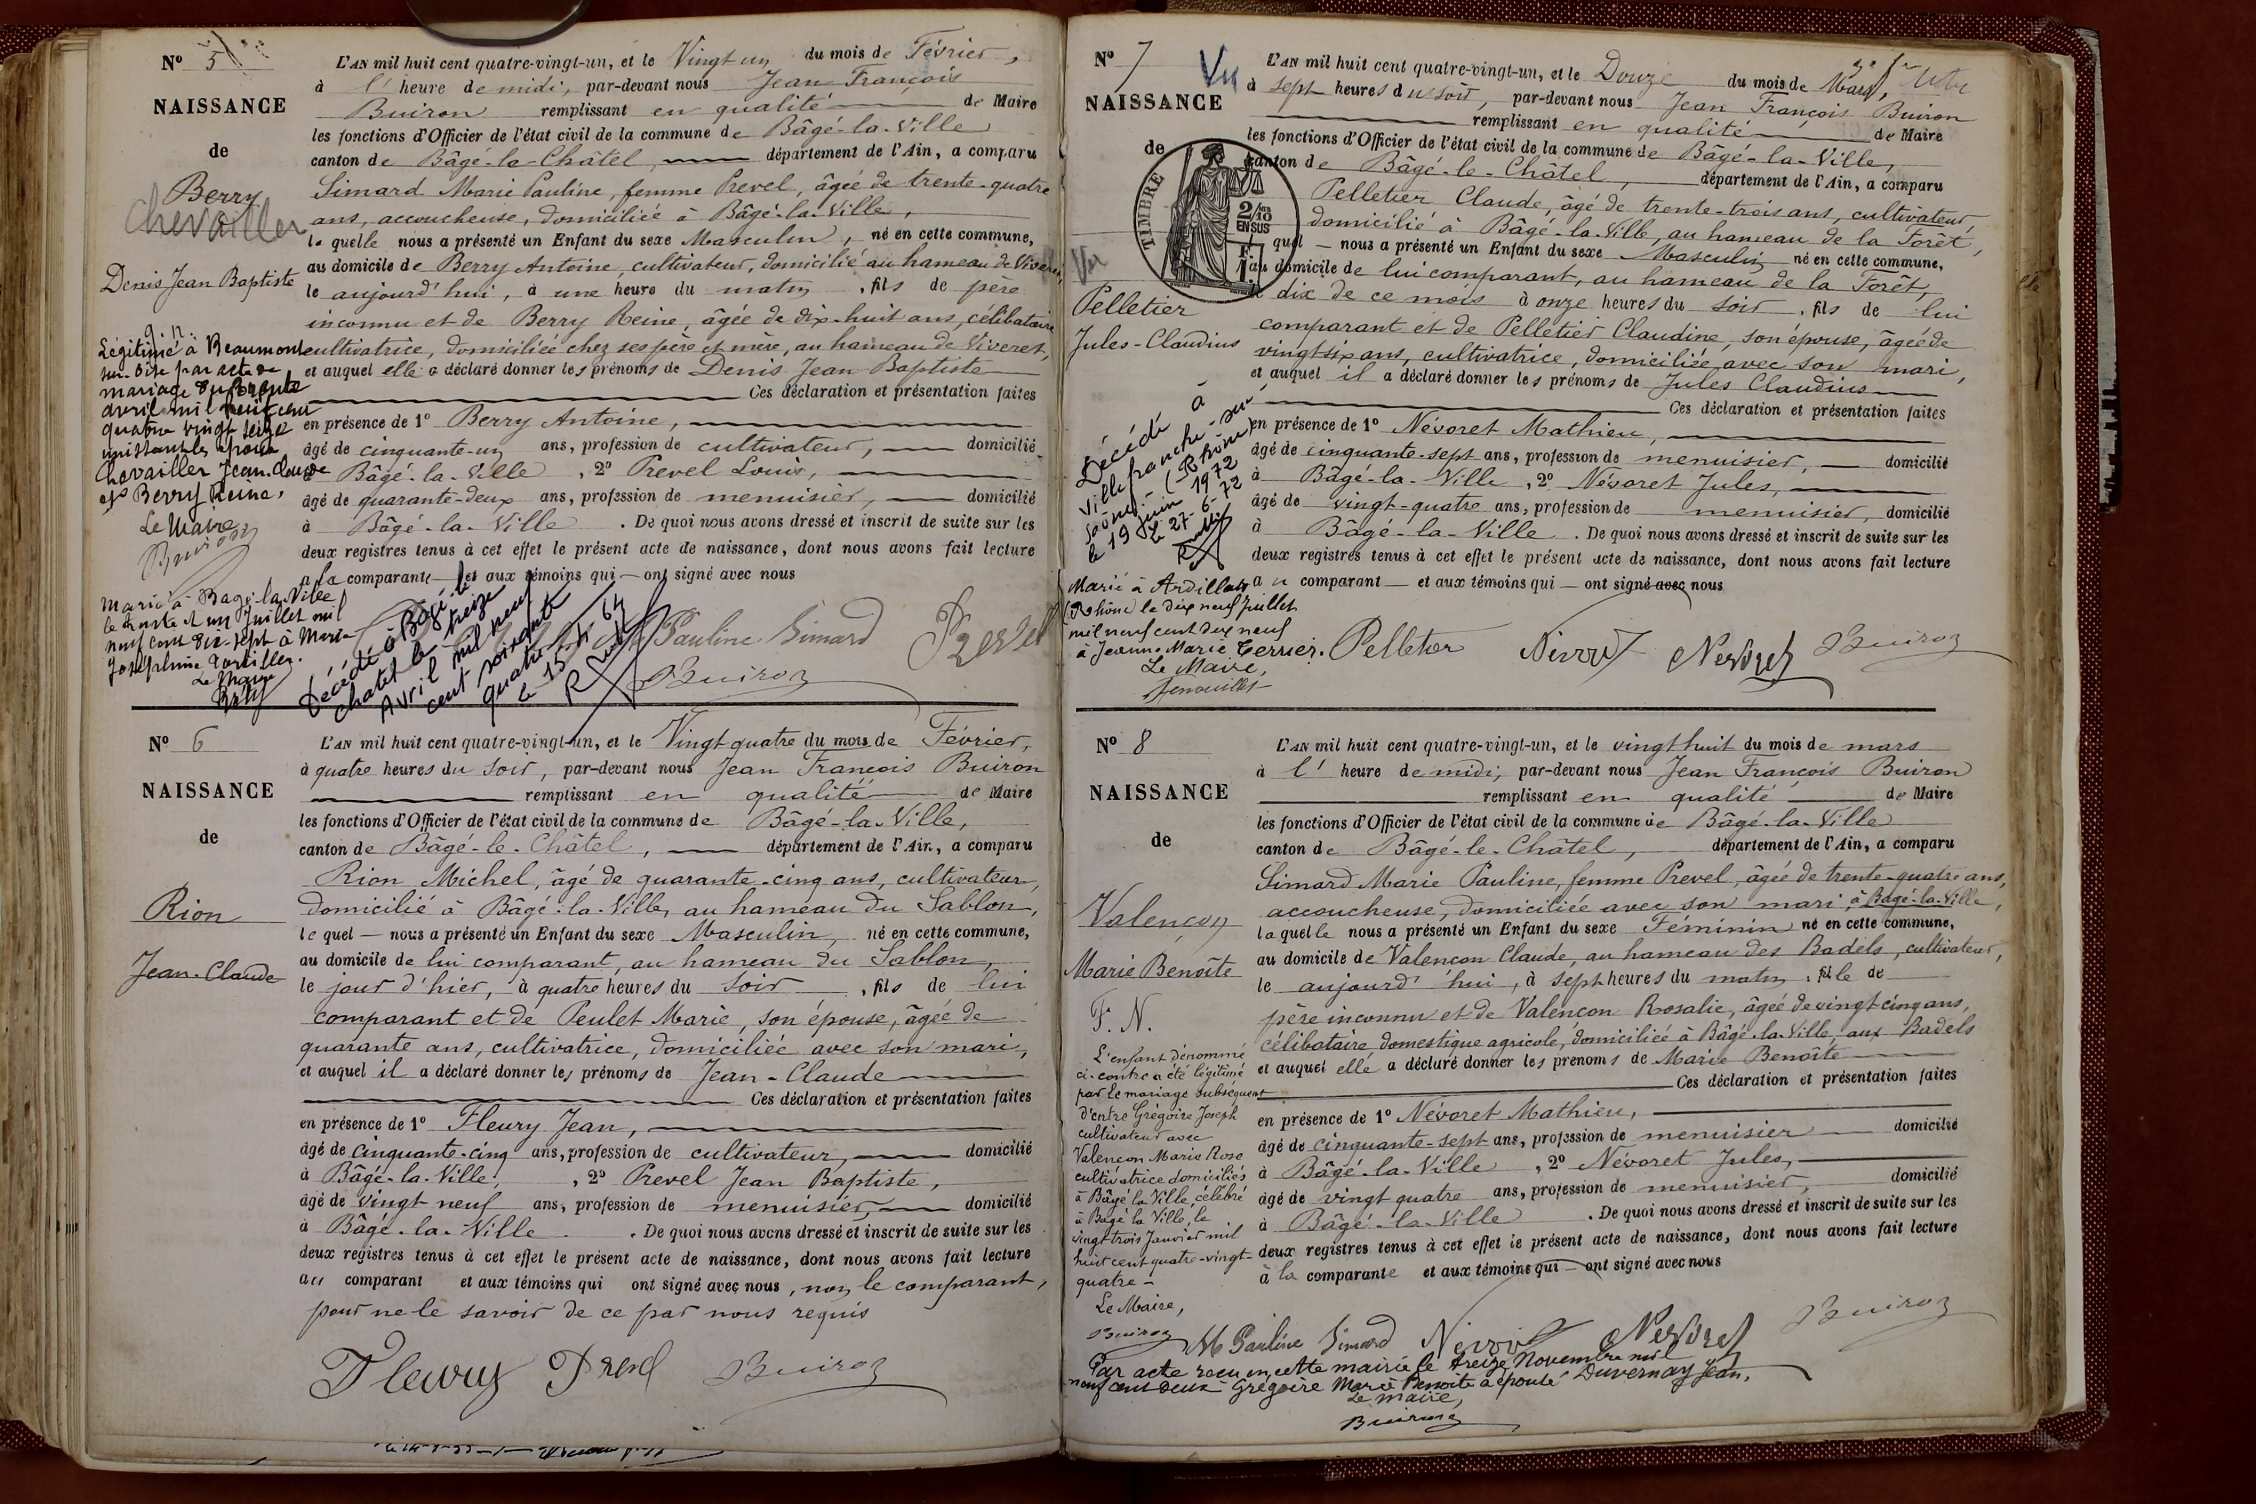 N° 5
NAISSANCE
de
Berry
Chevailler
Denis Jean Baptiste
Légitimé à Beaumont
sur-Oise par acte de
mariage du trente
avril mil huit cent
quatre vingt seize
unissant les époux
Chevailler Jean-Claude
et Berry Reine,
Le Maire
Buiron
Marié à Bagé-la-Ville
le trente et un Juillet mil
neuf cent dix-sept à Marie
Joséphine
Le Maire
L'AN mil huit cent quatre-vingt-un, et le Vingt un du mois de Février,
à l' heure de midi, par-devant nous Jean François
Buiron remplissant en qualité de Maire
les fonctions d'Officier de l'état civil de la commune de Bâgé-la-Ville
canton de Bâgé-le-Châtel, département de l'Ain, a comparu
Simard Marie Pauline, femme Prevel, âgée de trente-quatre
ans, accoucheuse, domiciliée à Bâgé-la-Ville,
laquelle nous a présenté un Enfant du sexe Masculin, né en cette commune,
au domicile de Berry Antoine, cultivateur, domicilié au hameau de Viveret,
le aujourd'hui, à une heure du matin, fils de père
inconnu et de Berry Reine, âgée de dix-huit ans, célibataire
cultivatrice, domiciliée chez ses père et mère, au hameau de Viveret,
et auquel elle a déclaré donner les prénoms de Denis Jean Baptiste
Ces déclaration et présentation faites
en présence de 1° Berry Antoine,
âgé de cinquante-un ans, profession de cultivateur, domicilié
à Bâgé-la-Ville, 2° Prevel Louis,
âgé de quarante-deux ans, profession de menuisier, domicilié
à Bâgé-la-Ville. De quoi nous avons dressé et inscrit de suite sur les
deux registres tenus à cet effet le présent acte de naissance, dont nous avons fait lecture
à la comparante et aux témoins qui ont signé avec nous
Décédé à Bâgé le
chatel le treize
Avril mil neuf
cent soixante
quatre
le 15.4.64
M Pauline Simard Prevel
Buiron
N° 6
NAISSANCE
de
Rion
Jean-Claude
L'AN mil huit cent quatre-vingt-un, et le Vingt quatre du mois de Février,
à quatre heures du soir, par-devant nous Jean François Buiron
remplissant en qualité de Maire
les fonctions d'Officier de l'état civil de la commune de Bâgé-la-Ville,
canton de Bâgé-le-Châtel, département de l'Ain, a comparu
Rion Michel, âgé de quarante-cinq ans, cultivateur,
domicilié à Bâgé-la-Ville, au hameau du Sablon,
lequel nous a présenté un Enfant du sexe Masculin, né en cette commune,
au domicile de lui comparant, au hameau du Sablon,
le jour d'hier, à quatre heures du soir, fils de lui
comparant et de Peulet Marie, son épouse, âgée de
quarante ans, cultivatrice, domiciliée avec son mari,
et auquel il a déclaré donner les prénoms de Jean-Claude
Ces déclaration et présentation faites
en présence de 1° Fleury Jean,
âgé de cinquante-cinq ans, profession de cultivateur, domicilié
à Bâgé-la-Ville, 2° Prevel Jean Baptiste,
âgé de vingt neuf ans, profession de menuisier, domicilié
à Bâgé-la-Ville. De quoi nous avons dressé et inscrit de suite sur les
deux registres tenus à cet effet le présent acte de naissance, dont nous avons fait lecture
au comparant et aux témoins qui ont signé avec nous, non le comparant,
pour ne le savoir de ce par nous requis
Fleury Prevel Buiron
N° 7
Vu
NAISSANCE
de
TIMBRE
2/10 EN SUS
Vu
Pelletier
Jules-Claudius
Décédé à
Villefranche-sur
Saône (Rhône)
le 19 Juin 1972
le 27-6-72
Marié à Ardillats
(Rhône) le dix neuf juillet
mil neuf cent dix neuf
à Jeanne Marie Terrier.
Le Maire,
L'AN mil huit cent quatre-vingt-un, et le Douze du mois de Mars,
à sept heures du soir, par-devant nous Jean François Buiron
remplissant en qualité de Maire
les fonctions d'Officier de l'état civil de la commune de Bâgé-la-Ville,
canton de Bâgé-le-Châtel, département de l'Ain, a comparu
Pelletier Claude, âgé de trente-trois ans, cultivateur,
domicilié à Bâgé-la-Ville, au hameau de la Forêt,
lequel nous a présenté un Enfant du sexe Masculin né en cette commune,
au domicile de lui comparant, au hameau de la Forêt,
le dix de ce mois à onze heures du soir, fils de lui
comparant et de Pelletier Claudine, son épouse, âgée de
vingt six ans, cultivatrice, domiciliée avec son mari,
et auquel il a déclaré donner les prénoms de Jules Claudius
Ces déclaration et présentation faites
en présence de 1° Névoret Mathieu,
âgé de cinquante-sept ans, profession de menuisier, domicilié
à Bâgé-la-Ville, 2° Névoret Jules,
âgé de vingt-quatre ans, profession de menuisier, domicilié
à Bâgé-la-Ville. De quoi nous avons dressé et inscrit de suite sur les
deux registres tenus à cet effet le présent acte de naissance, dont nous avons fait lecture
au comparant et aux témoins qui ont signé avec nous
Pelletier Nevoret Nevoret Buiron
N° 8
NAISSANCE
de
Valençon
Marie Benoîte
F. N.
L'enfant dénommé
ci-contre a été légitimé
par le mariage subséquent
d'entre Grégoire Joseph
cultivateur avec
Valençon Marie Rose
cultivatrice domiciliés
à Bâgé la Ville célébré
à Bâgé la Ville le
vingt-trois Janvier mil
huit cent quatre-vingt-
quatre
Le Maire,
Buiron
L'AN mil huit cent quatre-vingt-un, et le vingt huit du mois de mars
à l' heure de midi, par-devant nous Jean François Buiron
remplissant en qualité de Maire
les fonctions d'Officier de l'état civil de la commune de Bâgé-la-Ville
canton de Bâgé-le-Châtel, département de l'Ain, a comparu
Simard Marie Pauline, femme Prevel, âgée de trente-quatre ans,
accoucheuse, domiciliée avec son mari à Bâgé-la-Ville,
laquelle nous a présenté un Enfant du sexe Féminin né en cette commune,
au domicile de Valençon Claude, au hameau des Badels, cultivateur,
le aujourd'hui, à sept heures du matin, fille de
père inconnu et de Valençon Rosalie, âgée de vingt cinq ans,
célibataire domestique agricole, domiciliée à Bâgé-la-Ville, aux Badels
et auquel elle a déclaré donner les prénoms de Marie Benoîte
Ces déclaration et présentation faites
en présence de 1° Névoret Mathieu,
âgé de cinquante-sept ans, profession de menuisier domicilié
à Bâgé-la-Ville, 2° Névoret Jules,
âgé de vingt quatre ans, profession de menuisier, domicilié
à Bâgé-la-Ville. De quoi nous avons dressé et inscrit de suite sur les
deux registres tenus à cet effet le présent acte de naissance, dont nous avons fait lecture
à la comparante et aux témoins qui ont signé avec nous
M Pauline Simard Nevoret Nevoret Buiron
Par acte reçu en cette mairie le treize Novembre mil
neuf cent deux Grégoire Marie Benoîte a épousé Duvernay Jean.
Le Maire,
Buiron